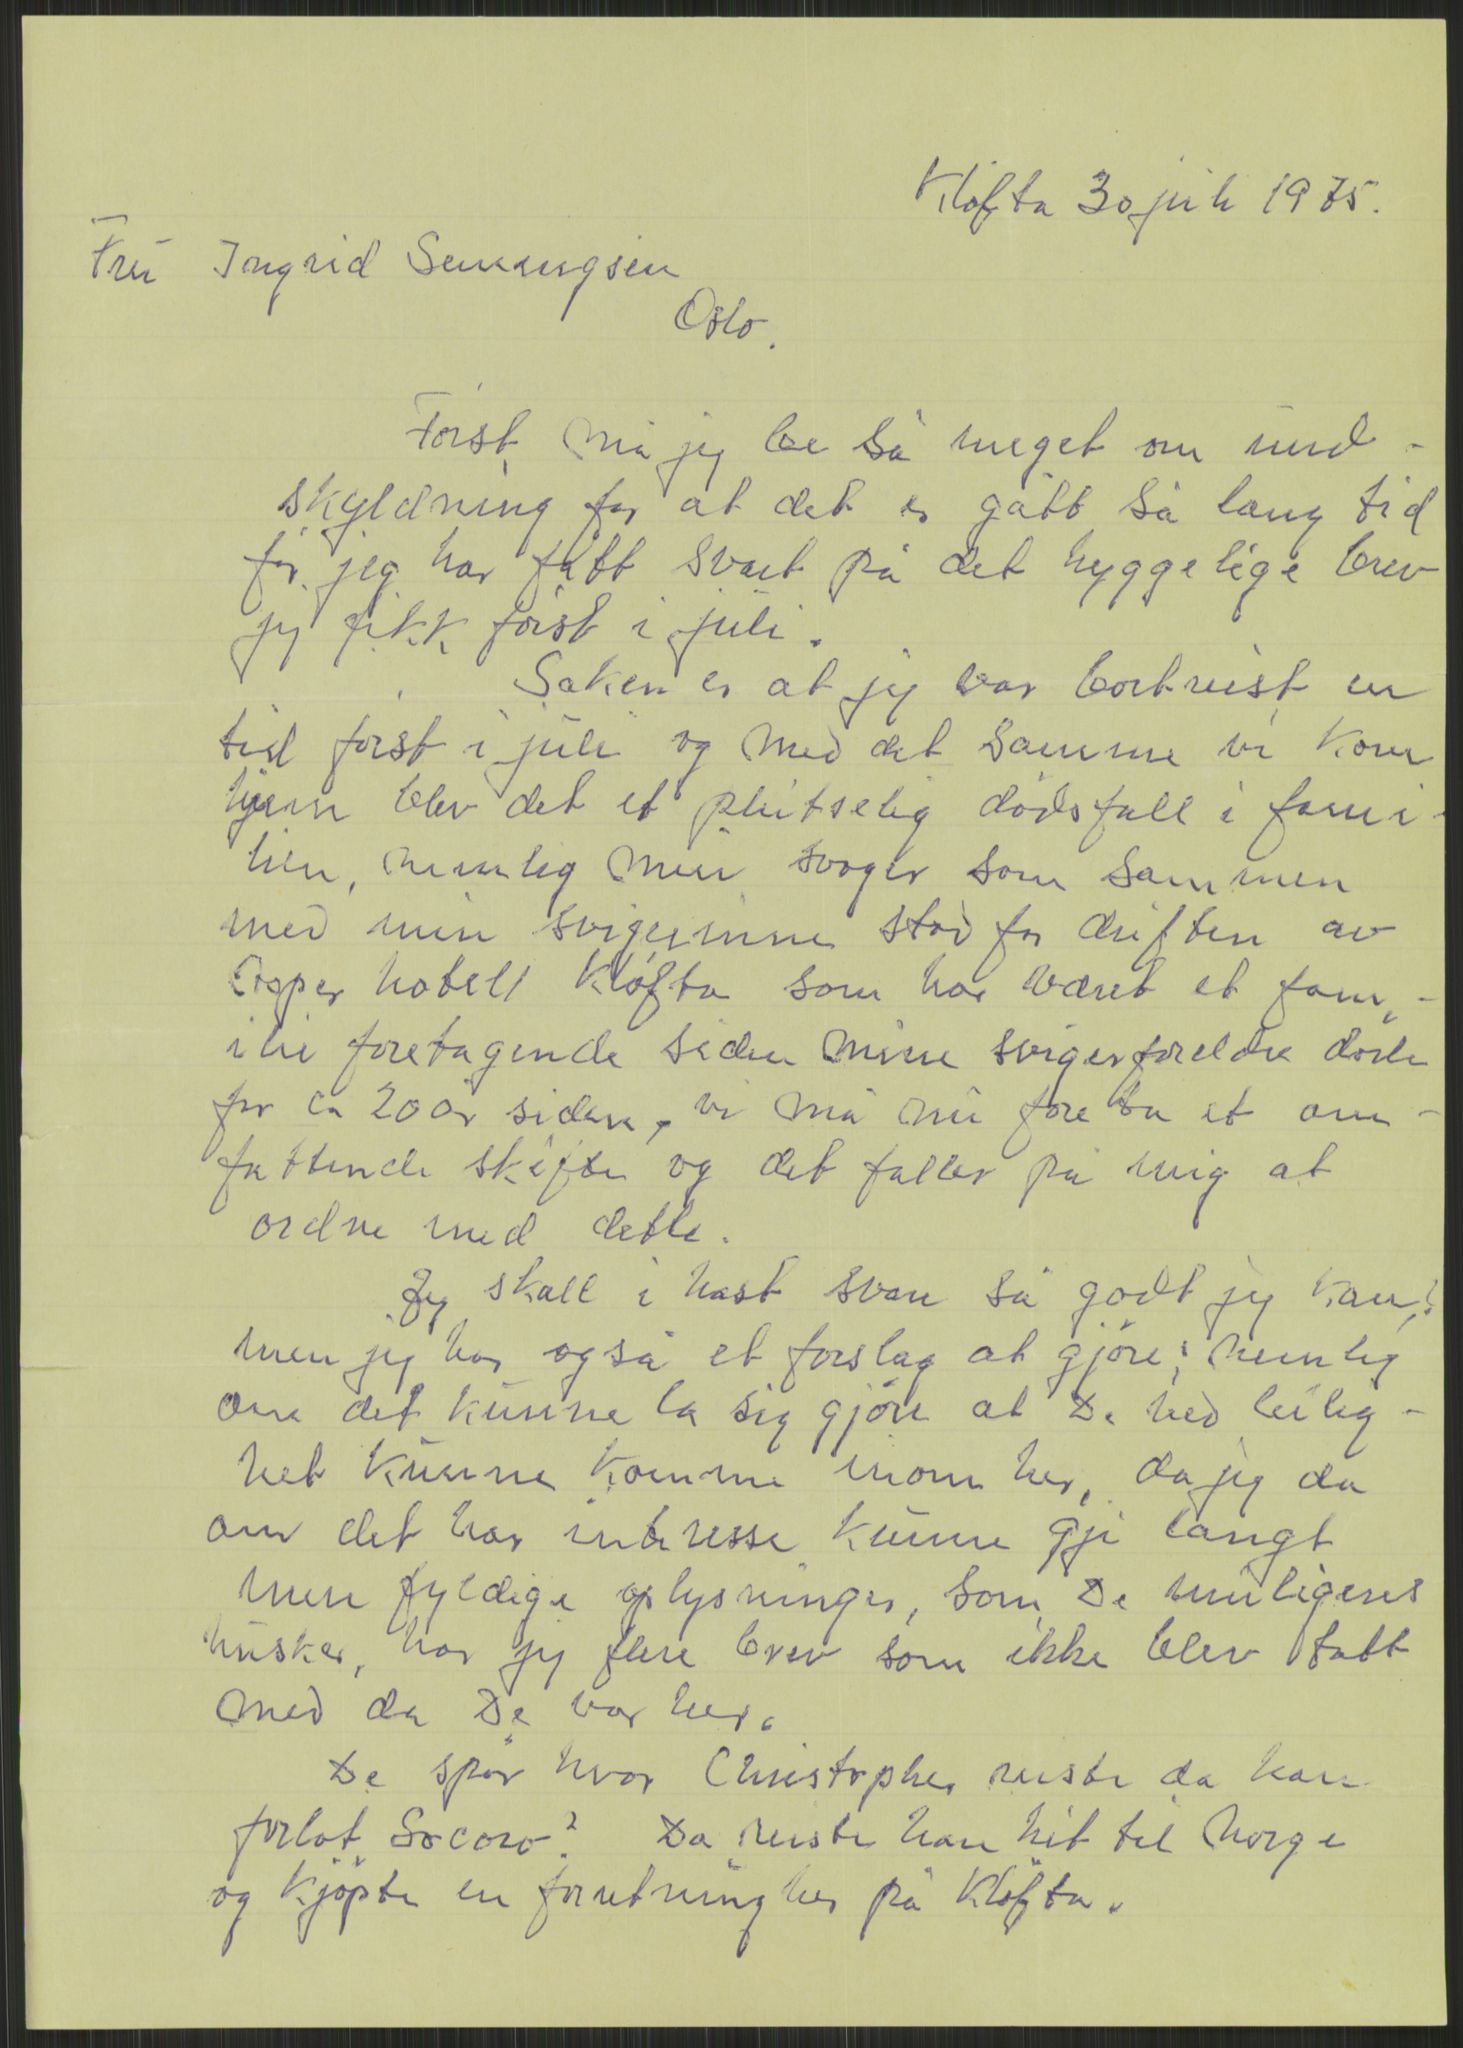 Kløfta 30 juli 1975.
Fru Ingrid Semmingsen
Oslo.
Først må jeg be så meget om und-
skyldning for at det er gått så lang tid
før jeg har fått svart på det hyggelige brev
jeg fikk først i juli.
Saken er at jeg var bortreist en
tid først i juli og med det samme vi kom
hjem blev det et plutselig dødsfall i fami-
lien, nemlig min svoger som sammen
med min svigerinne stod for driften av
hotell Kløfta som har været et fam-
ilie foretagende siden mine svigerforeldre døde
for ca 20 år siden, vi må nu foreta et om-
fattende skifte og det faller på mig at
ordne med dette.
Jeg skall i hast svare så godt jeg kan,
men jeg har også et forslag at gjøre; nemlig
om det kunne la sig gjøre at De ved leilig-
het kunne komme innom her, da jeg da
om det har interesse kunne gi langt
mere fyldige oplysninger, som De muligens
husker, har jeg flere brev som ikke blev tatt
med da De var her.
De spør hvor Christopher reiste da han
forlot Socoro? Da reiste han hit til Norge
og kjøpte en forretning her på Kløfta.